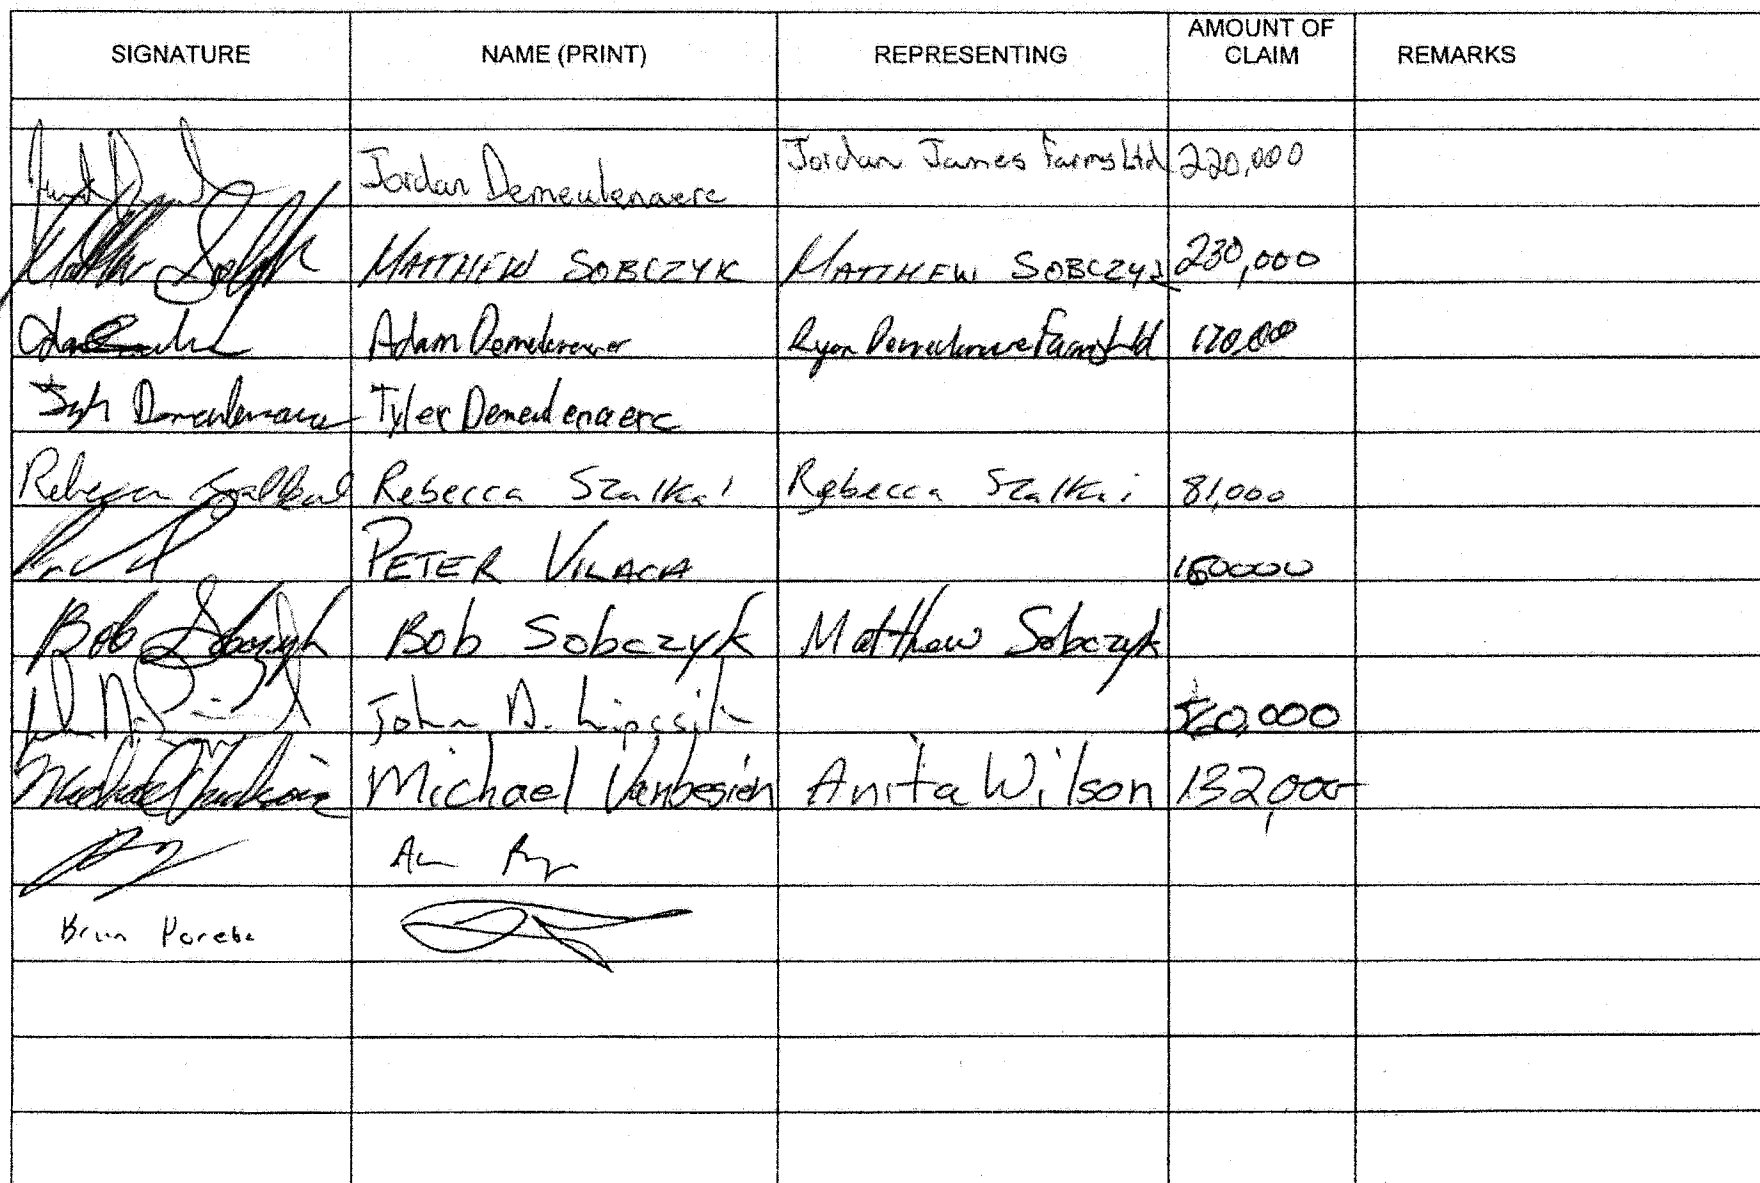 SIGNATURE NAME (PRINT) REPRESENTING AMOUNT OF CLAIM REMARKS
Jordan Demeulenaere Jordan James Farms Ltd 220,000
Matthew Sobczyk MATTHEW SOBCZYK MATTHEW SOBCZYK 230,000
Adam Demeulenaere Ryan Demeulenaere Farms Ltd
Tyler Demeulenaere Tyler Demeulenaere
Rebecca Szalkai Rebecca Szalkai Rebecca Szalkai 81,000
PETER VILACA
Bob Sobczyk Bob Sobczyk Matthew Sobczyk
John D.
Michael Vanbesien Michael Vanbesien Anita Wilson 132,000
Poreba